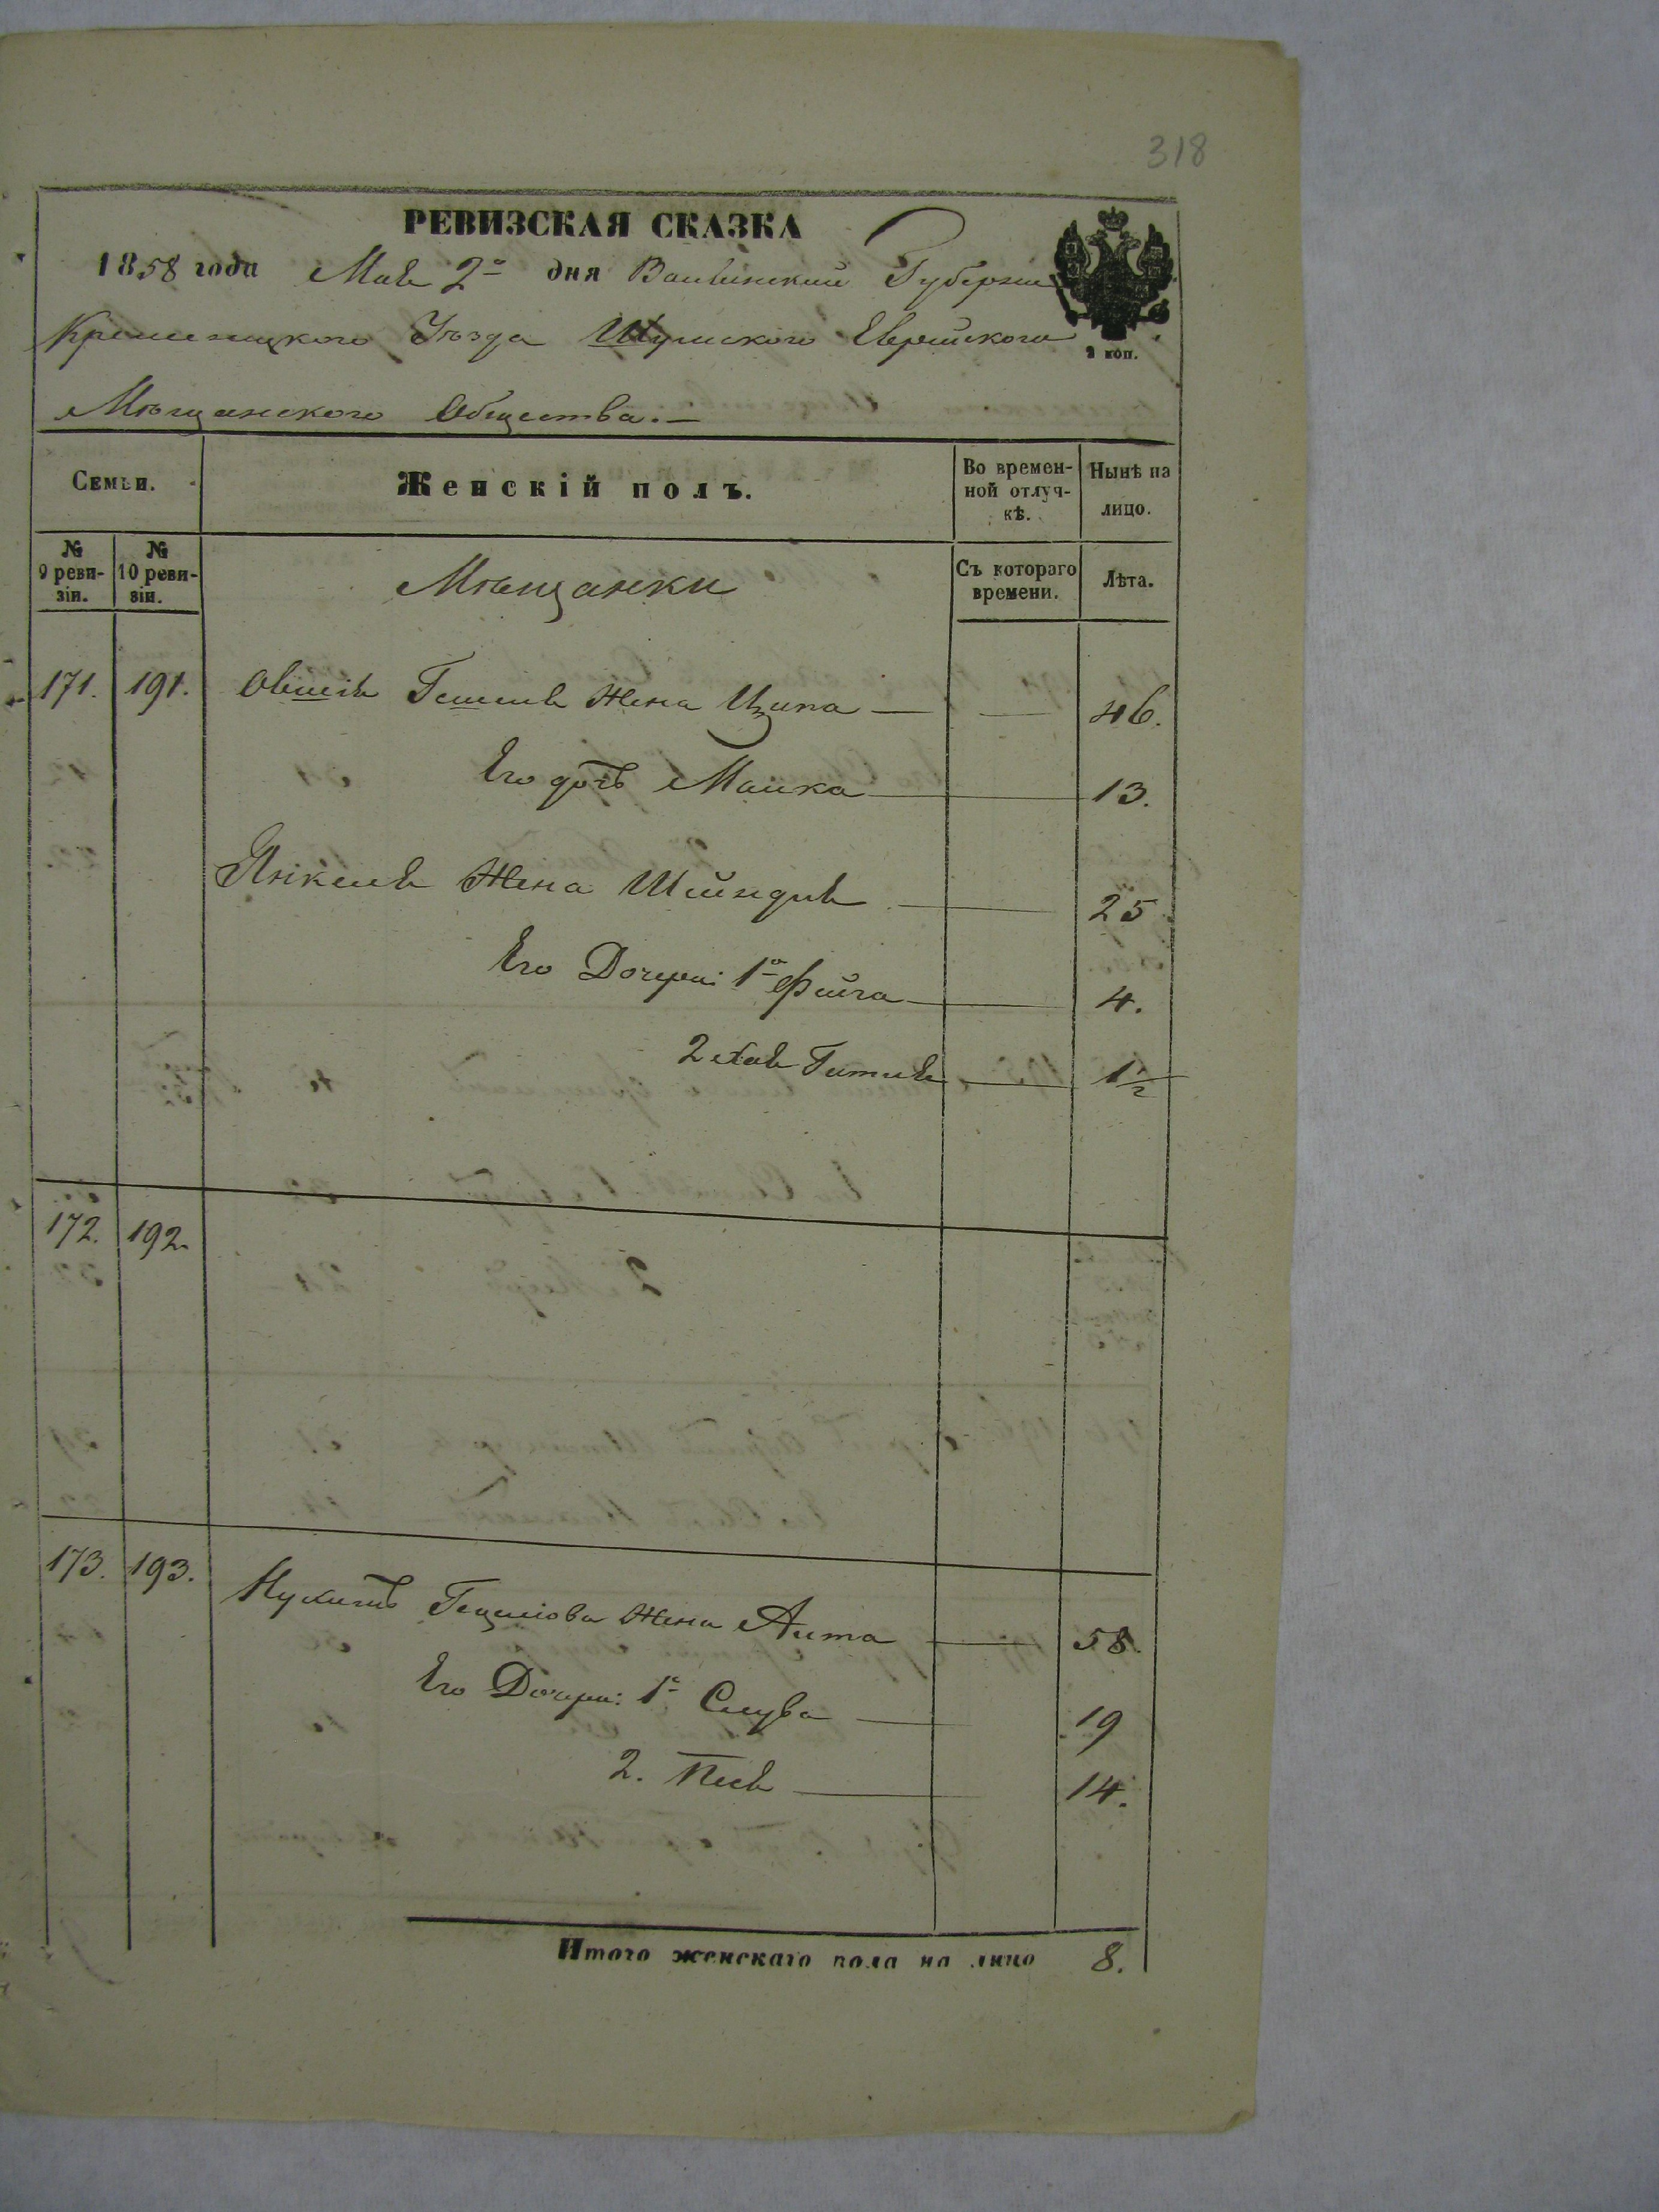 318
РЕВИЗСКАЯ СКАЗКА
1858 года Мая 2го дня Волынской Губернии
Кременецкого Уѣзда Шумского Еврейского
2 коп.
Мѣщанского Общества.—
Семьи.
Женскій полъ.
Во времен-
ной отлуч-
кѣ.
Нынѣ на
лицо.
№
9 реви-
зіи.
№
10 реви-
зіи.
Мѣщанки
Съ котораго
времени.
Лѣта.
171. 191. Овшія жена Ципа — — 46.
Его дочь Малка — 13.
Янкеля Жена Шейндля — 25
Его Дочери: 1я Фейга — 4.
2 Хая Гитля — 1½
172. 192.
173. 193. Жена — 58.
Его Дочери: 1я Слува — 19
2. Песя — 14.
Итого женскаго пола на лицо 8.